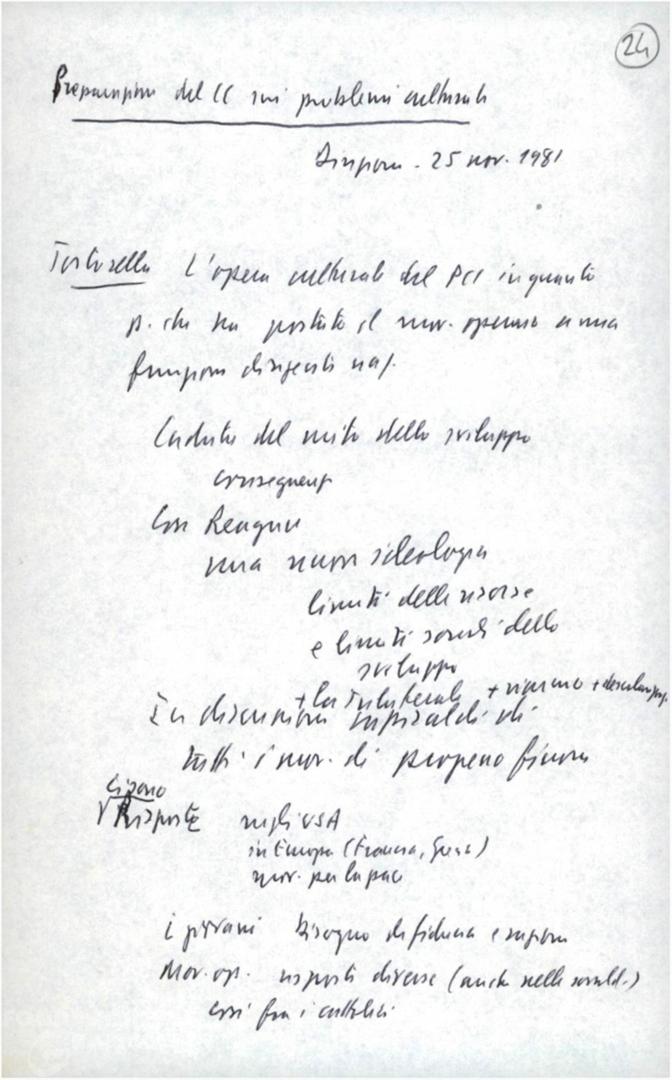 24
Preparazione del CC sui problemi culturali
Direzione - 25 nov. 1981
Tortorella L'opera culturale del PCI in quanto
p. che ha portato il mov. operaio a una
funzione dirigente naz.
Caduta del mito dello sviluppo
conseguenze
Con Reagan
una nuova ideologia
limiti delle risorse
e limiti sociali dello
sviluppo
+ la Trilaterale +
In discussione capisaldi di
tutti i mov. di progresso finora
Ci sono
Risposte negli USA
in Europa (Francia, Grecia)
mov. per la pace
i giovani bisogno di fiducia e
Mov. op. risposte diverse (anche nelle sociald.)
così fra i cattolici